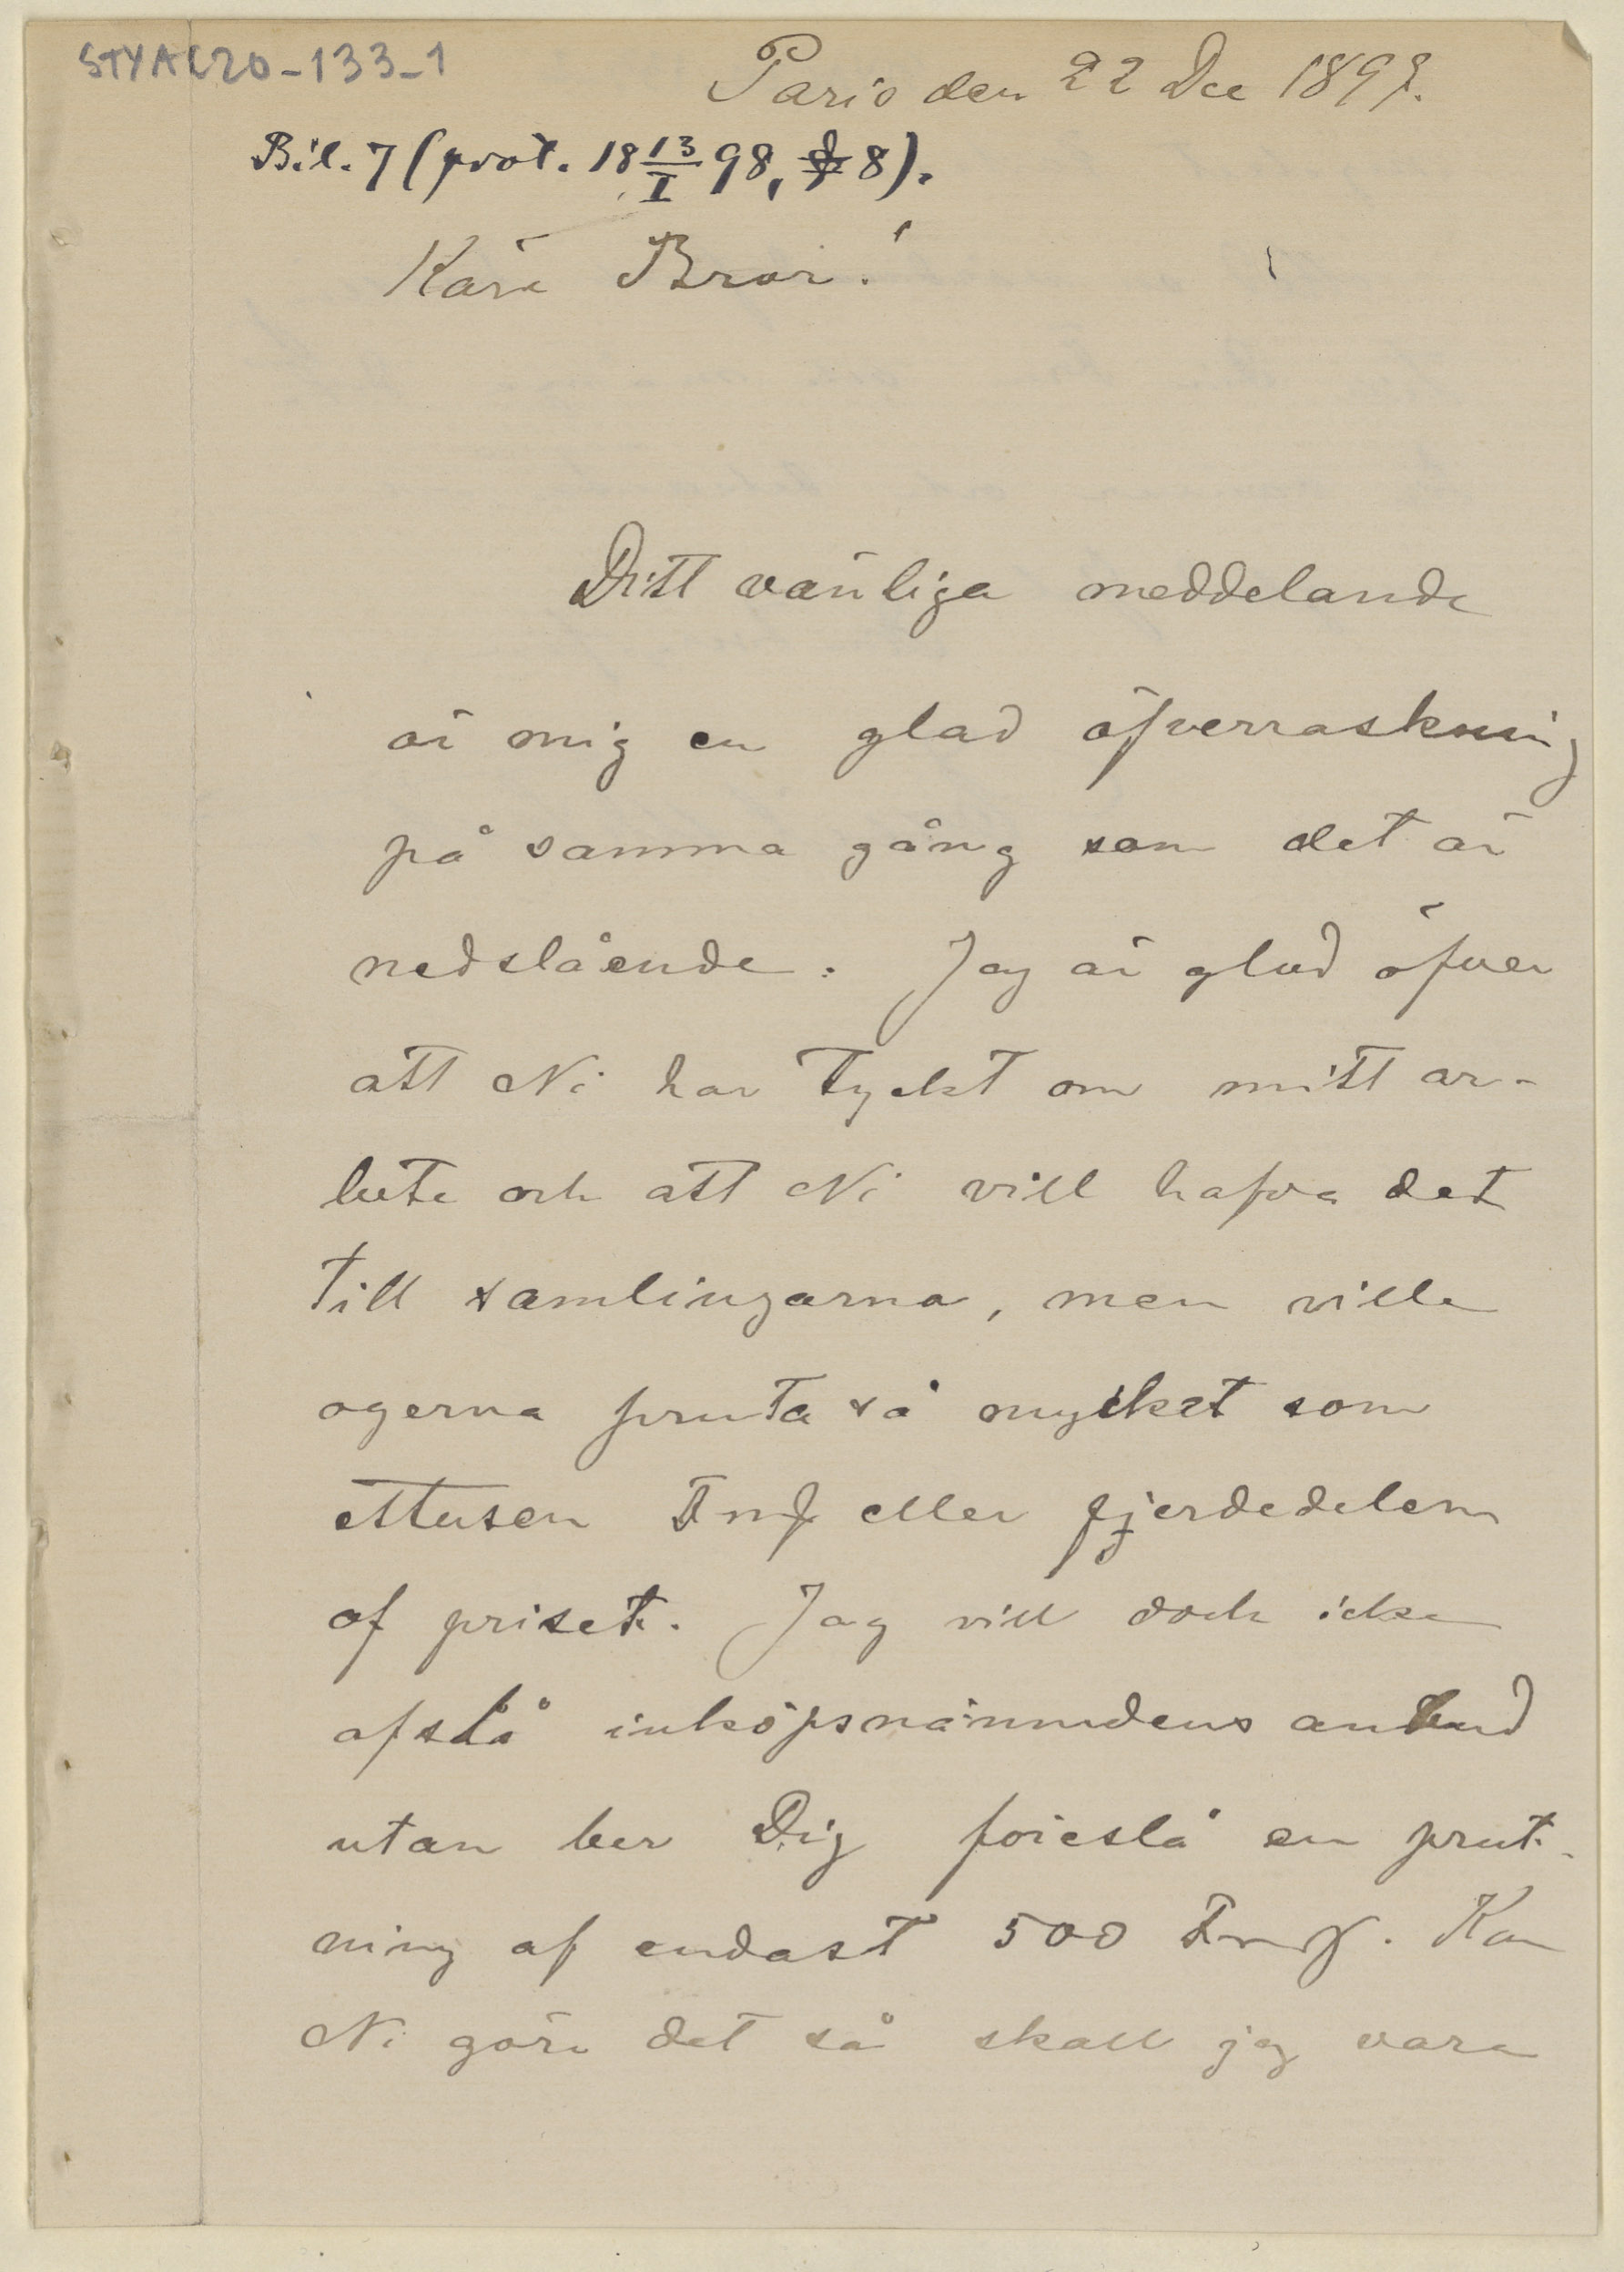 STYAL20-133-1
Paris den 22 Dec 1897.
Bil. 7 (prot. 18 13/I 98, § 8).
Käre Bror!
Ditt vänliga meddelande
är mig en glad öfverraskning
på samma gång som det är
nedslående: Jag är glad öfver
att Ni har tyckt om mitt ar-
bete och att Ni vill hafva det
till samlingarna, men ville
ogerna pruta så mycket som
ettusen Fmk eller fjerdedelen
af priset. Jag vill dock icke
afslå inköpsnämndens anbud
utan ber Dig föreslå en prut-
ning af endast 500 Fmk. Kan
Ni göra det så skall jag vara